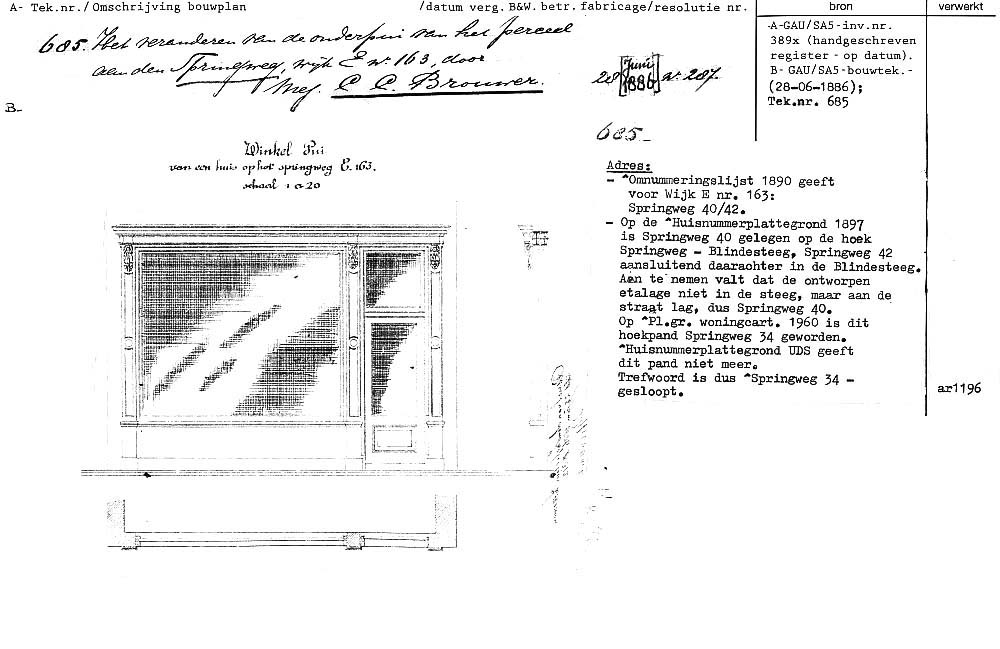 A- Tek.nr./Omschrijving bouwplan /datum verg. B&W. betr. fabricage/resolutie nr. bron verwerkt
685. Het veranderen van de onderpui van het perceel
aan den Springweg, wijk E no. 163, door
Mej. C. C. Brouwer.
28 [Juni 1886] no. 287.
-A-GAU/SA5-inv.nr.
389x (handgeschreven
register - op datum).
B- GAU/SA5-bouwtek.-
(28-06-1886);
Tek.nr. 685
B-
685-
Winkel Pui
van een huis op het springweg E. 163.
schaal 1 a 20
Adres:
- ^Omnummeringslijst 1890 geeft
voor Wijk E nr. 163:
Springweg 40/42.
- Op de ^Huisnummerplattegrond 1897
is Springweg 40 gelegen op de hoek
Springweg - Blindesteeg, Springweg 42
aansluitend daarachter in de Blindesteeg.
Aan te nemen valt dat de ontworpen
etalage niet in de steeg, maar aan de
straat lag, dus Springweg 40.
Op ^Pl.gr. woningcart. 1960 is dit
hoekpand Springweg 34 geworden.
^Huisnummerplattegrond UDS geeft
dit pand niet meer.
Trefwoord is dus ^Springweg 34 -
gesloopt.
ar1196